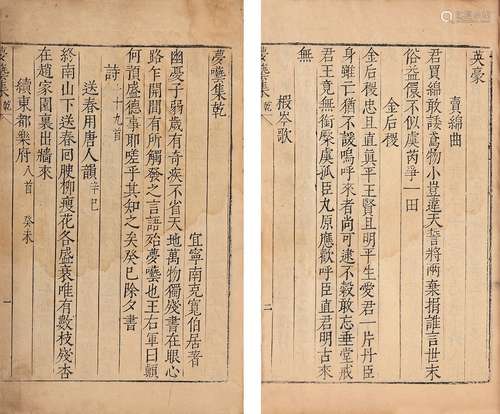 夢囈集乾
宜寧南克寬伯居著
幽憂子弱歲有奇疾不省天地萬物獨殘書在眼心
路乍開間有所觸發之言語殆夢囈也王右軍曰顧
何預盛德事耶嗟乎其知之矣癸巳除夕書
詩 十九首
送春用唐人韻 辛巳
終南山下送春回腰柳瘦花各盛衰唯有數枝殘杏
在趙家園裏出牆來
續東都樂府 八首 癸未
夢囈集 乾 一
英豪
賣綿曲
君買綿敢諼鬻物小豈違天誓將兩棄捐誰言世末
俗益偎不似虞芮爭一田
金后稷
金后稷忠且直眞平王賢且明平生愛君一片丹臣
身雖亡猶不諼嗚呼來者尚可逮不穀敢忘垂堂戒
君王竟無銜橛虞孤臣九原應歡呼臣直君明古來
無
椵岑歌
夢囈集 乾 二